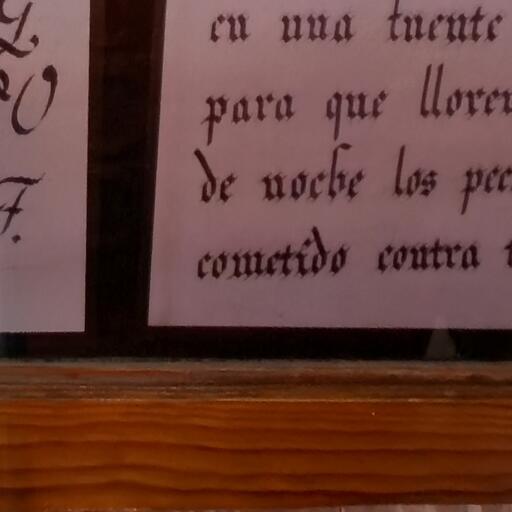 L.
O
F.
en una fuente
para que llore
de noche los pec
cometido contra